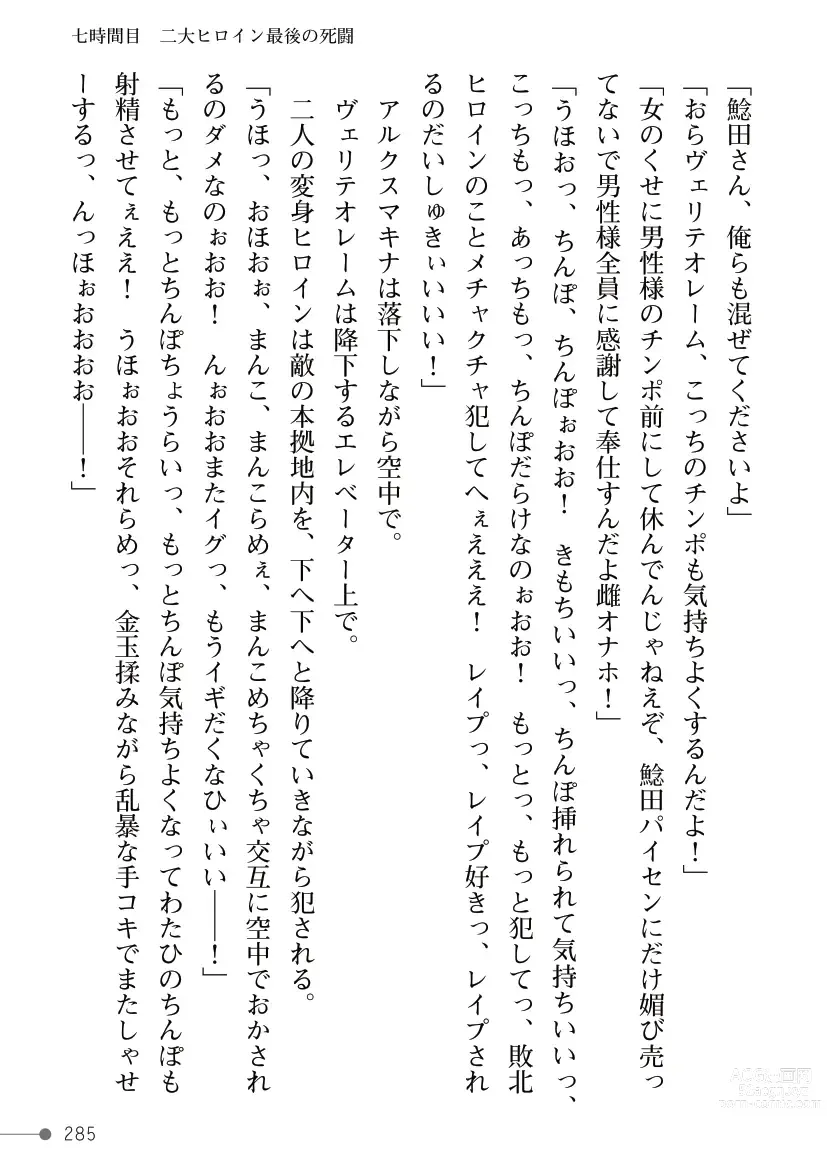 七時間目　二大ヒロイン最後の死闘
「鯰田さん、俺らも混ぜてくださいよ」
「おらヴェリテオレーム、こっちのチンポも気持ちよくするんだよ！」
「女のくせに男性様のチンポ前にして休んでんじゃねえぞ、鯰田パイセンにだけ媚び売っ
てないで男性様全員に感謝して奉仕すんだよ雌オナホ！」
「うほおっ、ちんぽ、ちんぽぉおお！　きもちいいっ、ちんぽ挿れられて気持ちいいっ、
こっちもっ、あっちもっ、ちんぽだらけなのぉおお！　もっとっ、もっと犯してっ、敗北
ヒロインのことメチャクチャ犯してへぇえええ！　レイプっ、レイプ好きっ、レイプされ
るのだいしゅきぃいいい！」
アルクスマキナは落下しながら空中で。
ヴェリテオレームは降下するエレベーター上で。
二人の変身ヒロインは敵の本拠地内を、下へ下へと降りていきながら犯される。
「うほっ、おほおぉ、まんこ、まんこらめぇ、まんこめちゃくちゃ交互に空中でおかされ
るのダメなのぉおお！　んぉおおまたイグっ、もうイギだくなひぃいい――！」
「もっと、もっとちんぽちょうらいっ、もっとちんぽ気持ちよくなってわたひのちんぽも
射精させてぇええ！　うほぉおおそれらめっ、金玉揉みながら乱暴な手コキでまたしゃせ
ーするっ、んっほぉおおおお――！」
285